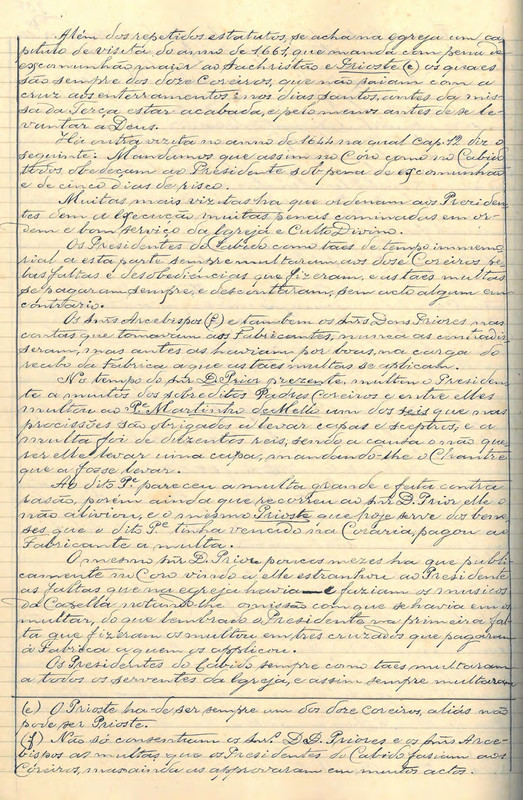 Além dos repetidos estatutos, se acha na egreja um ca
pitulo de visita do anno de 1661, que manda com pena de
excomunhão maior ao Sachristão e Prioste (e) os quaes
são sempre dos doze Coreiros, que não saiam com a
cruz aos enterramentos nos dias santos, antes da mis-
sa da Terça estar acabada, e pelo menos antes de se le-
vantar a Deus.
Ha outra vizita no anno de 1644 na qual cap. 12 diz o
seguinte: Mandamos que assim no Côro como no Cabido
todos obedeçam ao Presidente sob pena de excomunhão
e de cinco dias de pisco.
Muitas mais vizitas ha que ordenam aos Presiden-
tes dem a execução muitas penas cominadas em or-
dem e bom serviço da Egreja e Culto Divino.
Os Presidentes do Cabido como taes de tempo immemo-
rial a esta parte sempre multaram aos dose Coreiros pe-
las faltas e desobediências que fizeram, e as taes multas
se pagaram sempre, e descontaram, sem acto algum em
contrario.
Os Snrs. Arcebispos (f) e tambem os Snrs. Dons Priores, nas
contas que tomavam aos Fabricantes, nunca as contradis-
seram, mas antes as haviam por boas, na carga do
recibo da Fabrica a que as taes multas se aplicam.
No tempo do Snr. D. Prior prezente, multou o Presiden-
te a muitos dos sobreditos Padres Coreiros e entre elles
multou ao Pe. Martinho de Mello um dos seis que nas
procissões são obrigados a levar capas e sceptros, e a
multa foi de duzentos reis, sendo a causa o não que-
rer elle levar uma capa, mandando-lhe o Chantre
que a fosse levar.
Ao dito Pe. pareceu a multa grande e feita contra
rasão, porém ainda que recorreu ao Snr. D. Prior elle o
não aliviou, e o mesmo Prioste que hoje serve dos bens,
ses, que o dito Pe. tinha vencido na Coraria, pagou ao
Fabricante a multa.
O mesmo Snr. D. Prior poucos mezes ha que publi-
camente no Coro vindo a elle estranhou ao Presidente
as faltas que na egreja havia e faziam os musicos
da Capella notando-lhe omissão com que se havia em os
multar, do que lembrado o Presidente na primeira fal-
ta que fizeram os multou em tres cruzados que pagaram
à Fabrica a quem os applicou.
Os Presidentes do Cabido sempre como taes multaram
a todos os serventes da Egreja, e assim sempre multaram
(e) O Prioste ha-de ser sempre um dos doze Coreiros, aliás não
pode ser Prioste.
(f) Não só consentiram os Snrs. D. D. Priores e os Snrs. Arce-
bispos as multas que os Presidentes do Cabido faziam aos
Coreiros, mas ainda as approvaram em muitos actos.